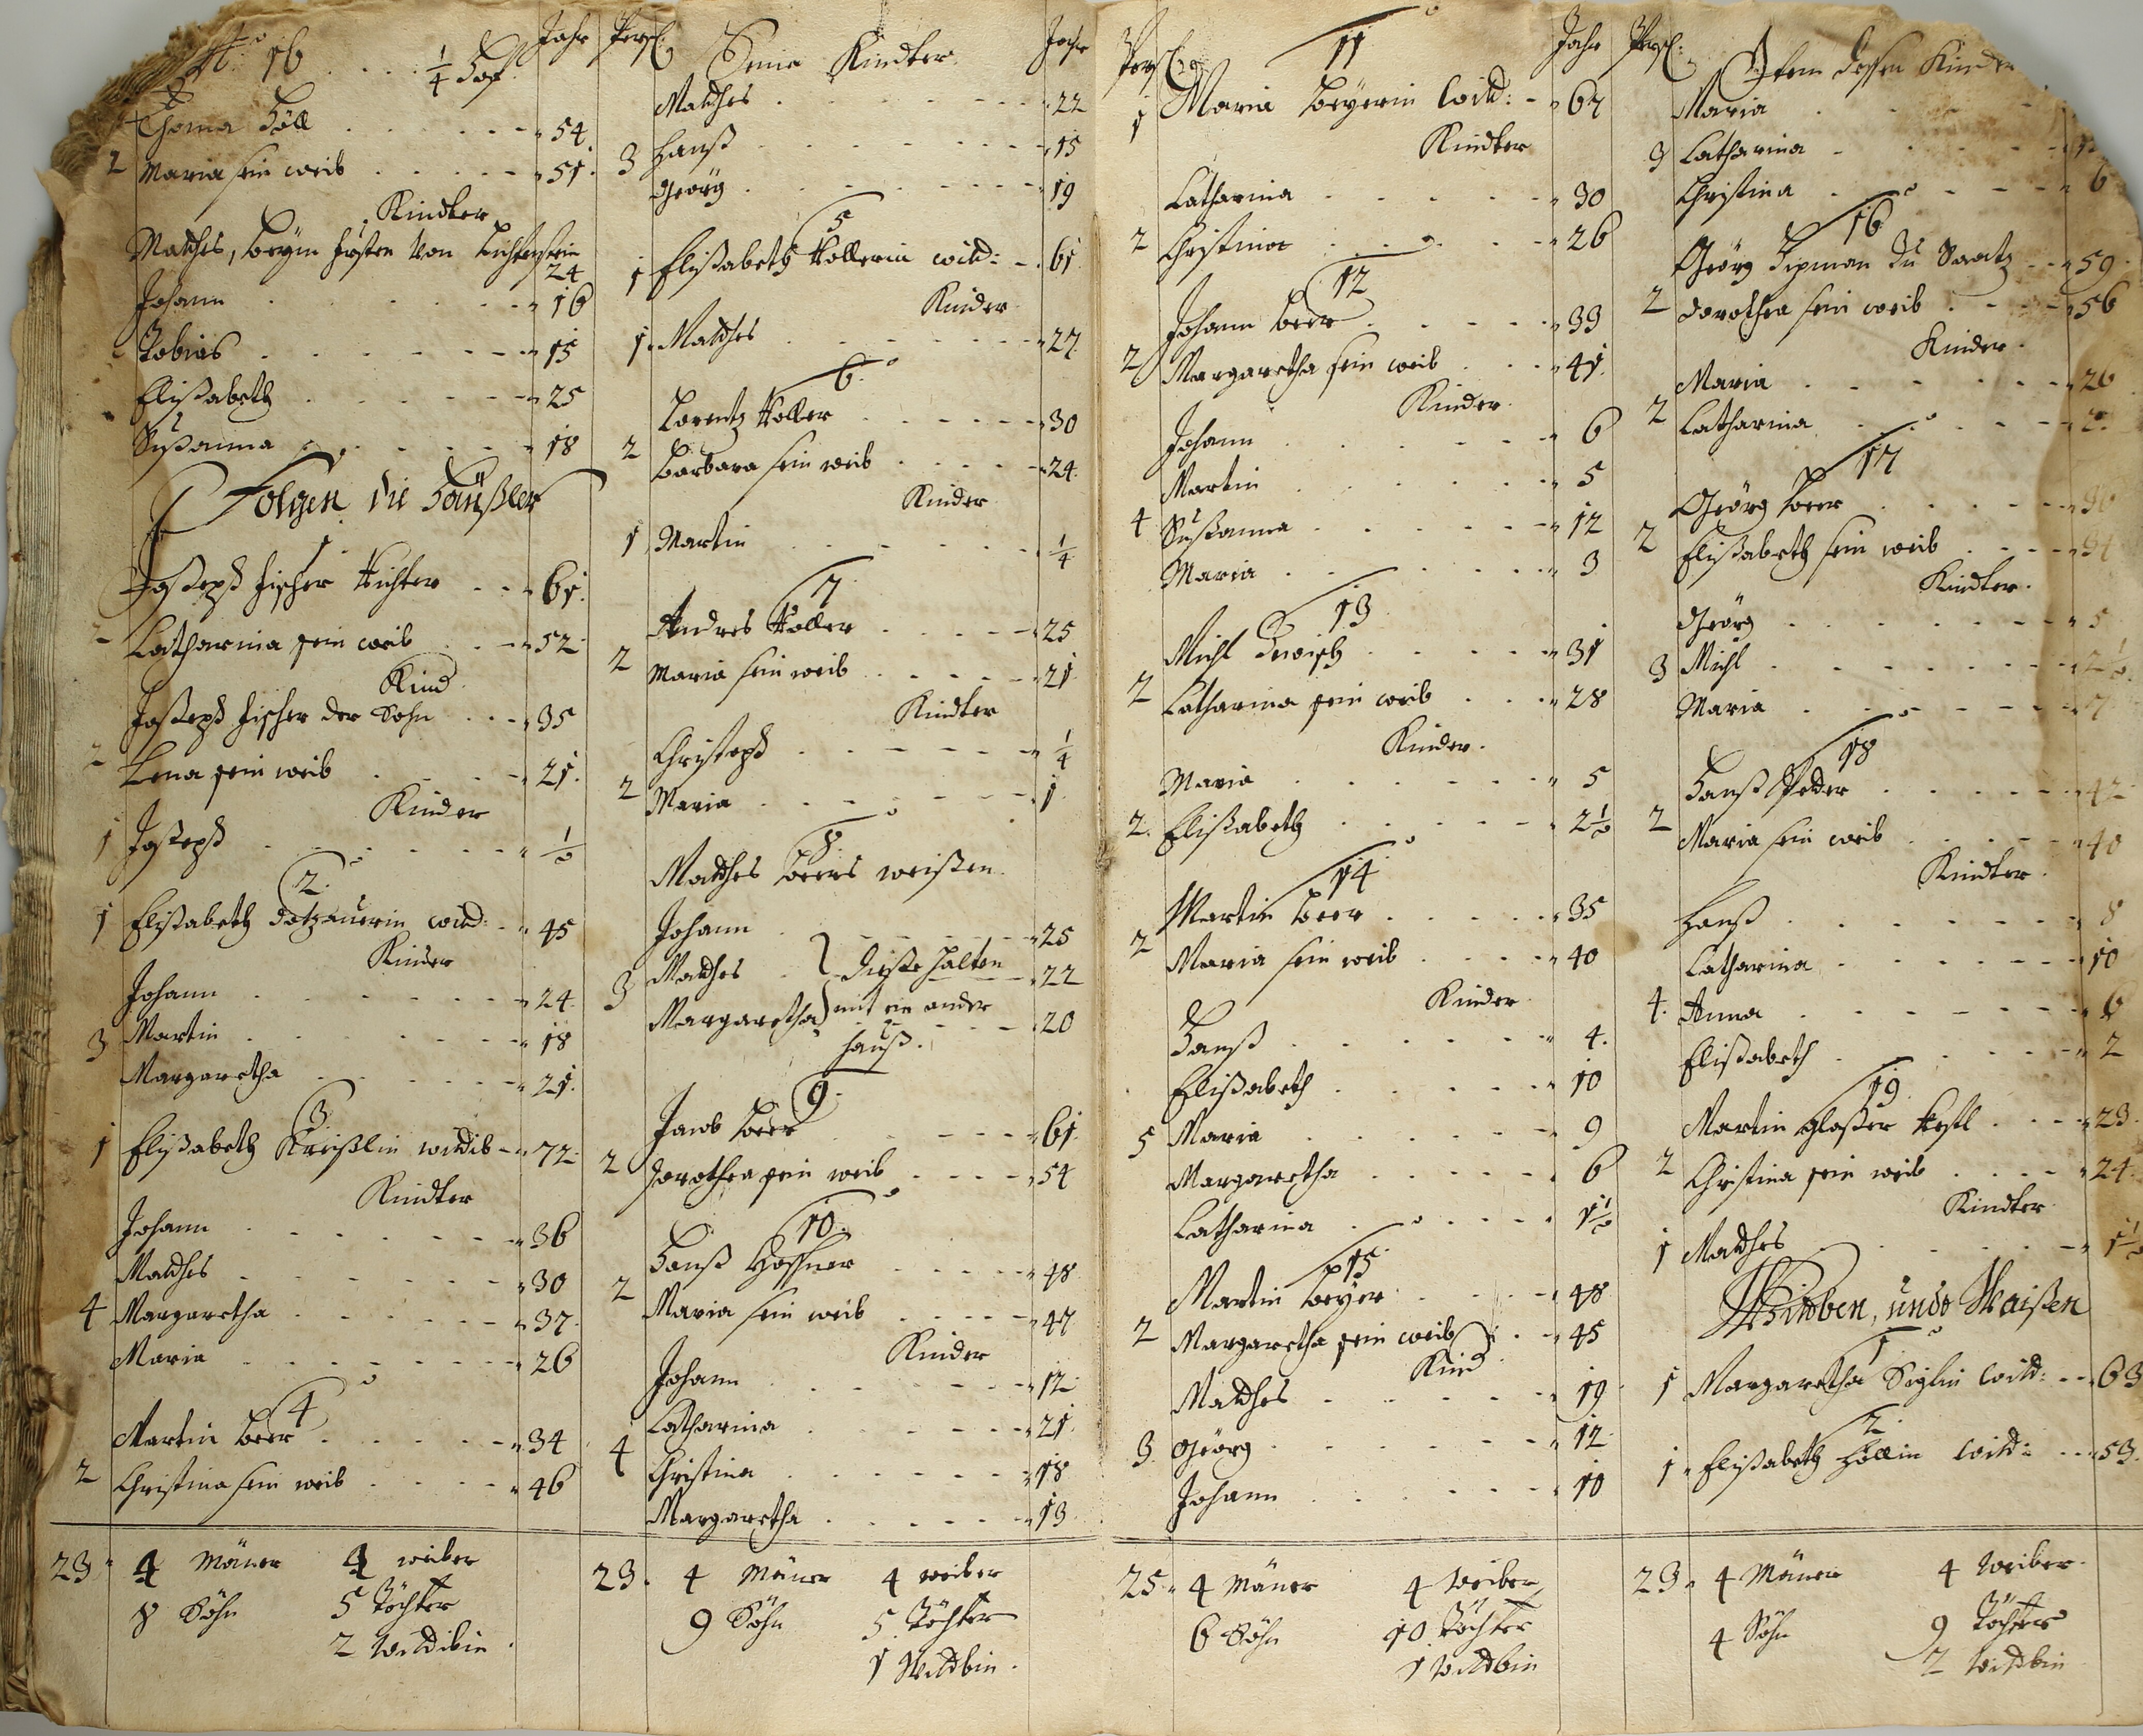 No. 16 . . . 1/4 Hof. Jahr
Thoma Höll . . . 54
2 Maria sein weib . . . 51.
Kindter
Matthes, beym fürsten von Lichtenstein
24
Johann . . . 16
Tobias . . . 15
Elißabeth . . . 25
Sußanna . . . 18
Folgen die Häußler
1.
Joßeph fischer Richter . . . 61.
Catharina sein weib . . . 52
Kind
Joßeph fischer der Sohn . . . 35
2 Lena sein weib . . . 21.
Kinder
1 Joßeph . . . 1/2
2.
1 Elißabeth Dotzauerin witt: . . 45
Kinder
Johann . . . 24.
3 Martin . . . 18
Margaretha . . . 21.
3.
1 Elißabeth Kreißlin wittib . . 72.
Kindter
Johann . . . 36
Matthes . . . 30
4 Margaretha . . . 37.
Maria . . . 26
4
Martin beer . . . 34
2 Christina sein weib . . . 46
23. 4 Mäner 4 weiber
8 Söhn 5 Töchter
2 Wittibin.
Pers: Seine Kindter Jahr
Matthes . . . 22
3 Hanß . . . 15
Georg . . . 19
5
1 Elißabeth Kollerin witt: . . 61
Kinder
1. Matthes . . . 27.
6.
Lorentz Koller . . . 30
2 Barbara sein weib . . . 24.
Kinder
1 Martin . . . 1/4
7
Andres Koller . . . 25
2 Maria sein weib . . . 21
Kindter
Christoph . . . 1/4
2 Maria . . . 1
8.
Matthes beers weißen.
Johann . . . 25
3 Matthes } dieße halten . . 22
Margaretha } mit ein ander . . 20
hauß.
9.
Jacob beer . . . 61.
2 Dorothea sein weib . . . 54
10.
Hanß Hoffner . . . 48
2 Maria sein weib . . . 47
Kinder
Johann . . . 12
Catharina . . . 21.
4 Christina . . . 18
Margaretha . . . 13
23. 4 Mäner 4 weiber
9 Söhn 5 Töchter
1 Wittbin.
Pers: 11 Jahr
1 Maria beyerin Witt: . . 67
Kindter
Catharina . . . 30
2 Christina . . . 26
12
Johann beer . . . 33
2 Margaretha sein weib . . . 41.
Kinder
Johann . . . 6
Martin . . . 5
4 Sußanna . . . 12
Maria . . . 3
13
Michl . . . 31
2 Catharina sein weib . . . 28
Kinder.
Maria . . . 5
2. Elißabeth . . . 2 1/2
14
Martin beer . . . 35
2 Maria sein weib . . . 40
Kinder
Hanß . . . 4.
Elißabeth . . . 10
5 Maria . . . 9
Margaretha . . . 6
Catharina . . . 1 1/2
15
Martin beyer . . . 48
2 Margaretha sein weib . . 45
Kind
Matthes . . . 19
3. Georg . . . 12
Johann . . . 10
25. 4 Mäner 4 Weiber
6 Söhn 10 Töchter
1 Wittbin
Pers: Item dessen Kinder
Maria
3 Catharina
Christina . . . 6
16
Georg Lipman Zu Saatz . . 59
2 Dorothea sein weib . . . 56
Kinder.
Maria . . . 26
2 Catharina
17
Georg beer . . . 36
2 Elißabeth sein weib . . . 34
Kindter.
Georg . . . 5
3 Michl . . . 2 1/2
Maria . . . 7
18
Hanß Peder . . . 42
2 Maria sein weib . . . 40
Kindter.
Hanß . . . 8
Catharina . . . 10
4. Anna . . . 6
Elißabeth . . . 2
19
Martin glaßer . . . 23.
2 Christina sein weib . . . 24.
Kindter
1 Matthes . . . 1 1/2
Wittben, undt Waißen
1
1 Margaretha Siglin witt: . . 63
2.
1. Elißabeth Höllin witt: . . 53.
23. 4 Mäner 4 Weiber.
4 Söhn 9 Töchter
2 Wittbin